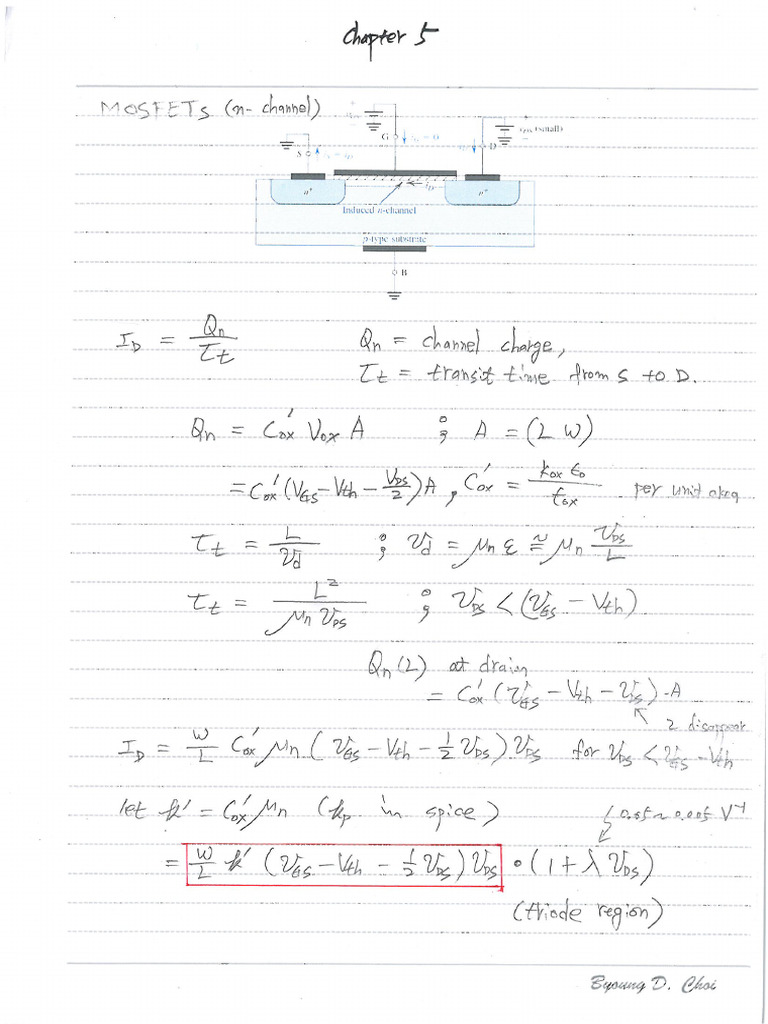 Chapter 5
MOSFETs (n-channel)
G
= 0
(small)
S
D
n+
n+
Induced n-channel
p-type substrate
B
I_D = Q_n / τ_t    Q_n = channel charge,
τ_t = transit time from S to D.
Q_n = C_ox' V_ox A ; A = (L W)
= C_ox' (V_GS - V_th - V_DS/2) A , C_ox' = k_ox ε_0 / t_ox per unit area
τ_t = L / v_d ; v_d = μ_n ε ≅ μ_n v_DS / L
τ_t = L² / (μ_n v_DS) ; v_DS < (v_GS - V_th)
Q_n(L) at drain
= C_ox' (v_GS - V_th - v_DS) · A
2 disappear
I_D = W/L C_ox' μ_n (v_GS - V_th - ½ v_DS) v_DS for v_DS < v_GS - V_th
let k' = C_ox' μ_n (kp in spice)
0.05 ~ 0.005 V⁻¹
= W/L k' (v_GS - V_th - ½ v_DS) v_DS • (1 + λ v_DS)
(triode region)
Byoung D. Choi